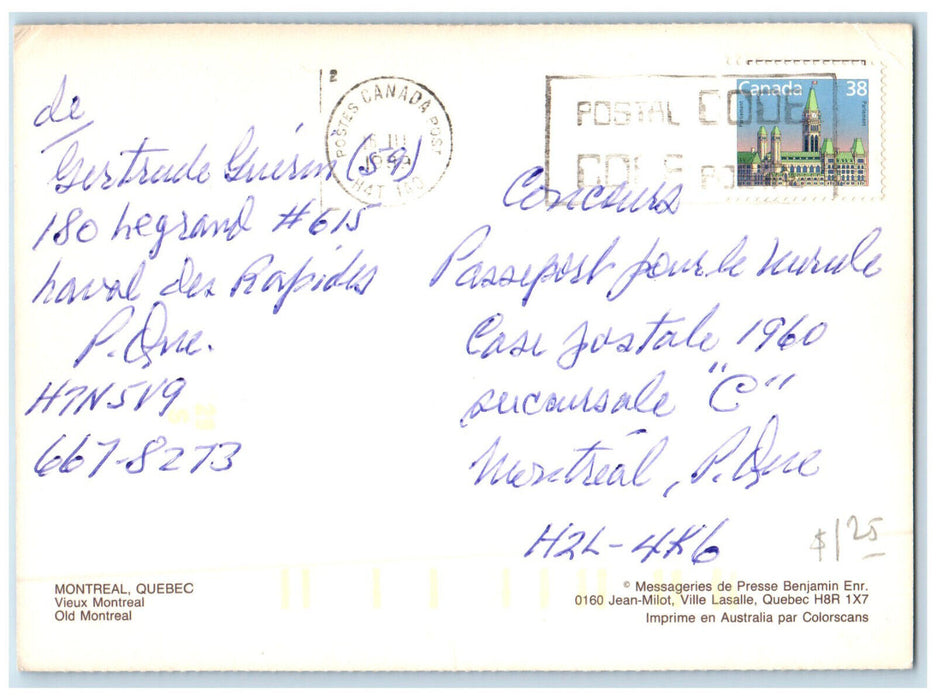 de
Gertrude Guérin (59)
180 Legrand #615
Laval des Rapides
P. Que.
H7N5V9
667-8273
2
POSTES CANADA POST
POSTAL CODE
CODE POSTAL
Canada 38
Concours
Passeport pour le monde
Case postale 1960
succursale "C"
Montréal, P. Que
H2L-4K6
$125
MONTREAL, QUEBEC
Vieux Montreal
Old Montreal
© Messageries de Presse Benjamin Enr.
0160 Jean-Milot, Ville Lasalle, Quebec H8R 1X7
Imprime en Australia par Colorscans